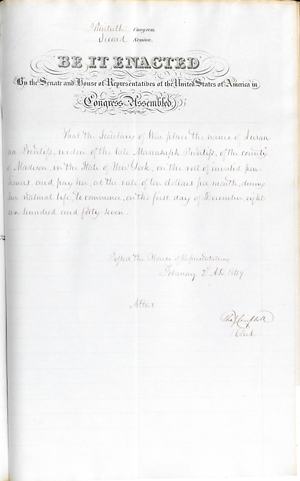 Thirtieth Congress
Second Session
BE IT ENACTED
By the Senate and House of Representatives of the United States of America in
Congress Assembled
That the Secretary of War place the name of Susan
na Prentiss, widow of the late Prentiss, of the county
of Madison, in the State of New York, on the roll of invalid pen
sioners, and pay her at the rate of ten dollars per month, during
her natural life, to commence, on the first day of December eight
een hundred and forty seven.
Passed the House of Representatives
February 2d 1849
Attest
Tho J Campbell
Clerk